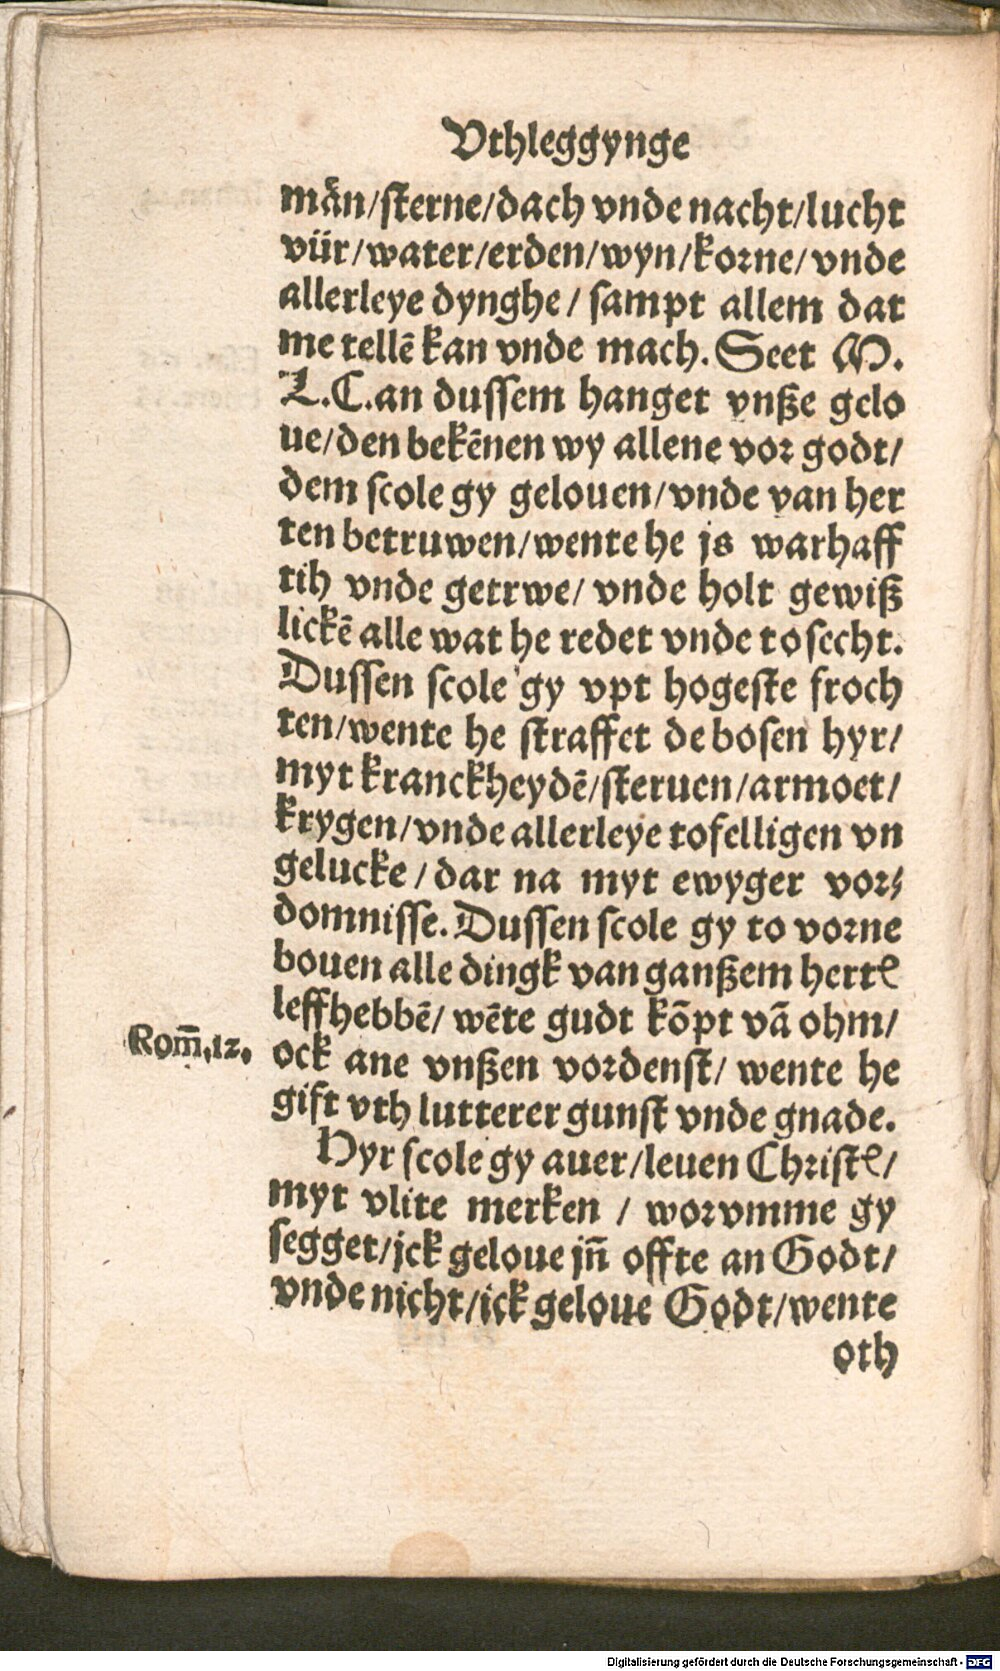 Vthleggynge
män/sterne/dach vnde nacht/lucht
vür/water/erden/wyn/korne/vnde
allerleye dynghe/ sampt allem dat
me tellē kan vnde mach. Seet M.
L.C.an dussem hanget vnße gelo
ue/den bekēnen wy allene vor godt/
dem scole gy gelouen/vnde van her
ten betruwen/wente he js warhaff
tih vnde getrwe/ vnde holt gewiß
lickē alle wat he redet vnde to secht.
Dussen scole gy vpt hogeste froch
ten/wente he straffet de bosen hyr/
myt kranckheydē/steruen/armoet/
krygen/vnde allerleye tofelligen vn
gelucke/dar na myt ewyger vor⸗
domnisse. Dussen scole gy to vorne
bouen alle dingk van ganßem hertē
leffhebbē/ wēte gudt kōpt vā ohm/
Rom̄.12. ock ane vnßen vordenst/ wente he
gift vth lutterer gunst vnde gnade.
Hyr scole gy auer/leuen Christē/
myt vlite merken / worvmme gy
segget/jck geloue jn̄ offte an Godt/
vnde nicht/ick geloue Godt/wente
oth
Digitalisierung gefördert durch die Deutsche Forschungsgemeinschaft - DFG